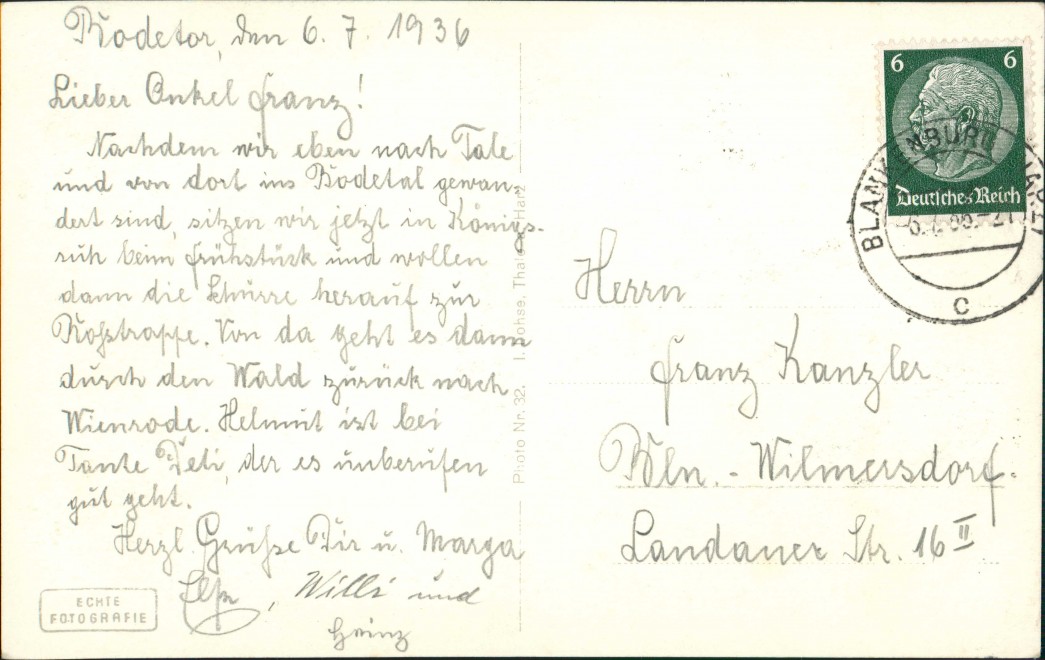 Bodetor, den 6. 7. 1936
Lieber Onkel Franz!
Nachdem wir eben nach Tale
und von dort ins Bodetal gewan-
dert sind, sitzen wir jetzt in Königs-
ruh beim Frühstück und wollen
dann die Schurre herauf zur
Roßtrappe. Von da geht es dann
durch den Wald zurück nach
Wienrode. Helmut ist bei
Tante Deti, der es unberufen
gut geht.
Herzl. Grüße Dir u. Marga
Willi und
Heinz
ECHTE
FOTOGRAFIE
Photo Nr. 32. Thale Harz
6 6
Deutsches Reich
BLANKENBURG
c
Herrn
Franz Kanzler
Bln.-Wilmersdorf.
Landauer Str. 16 II